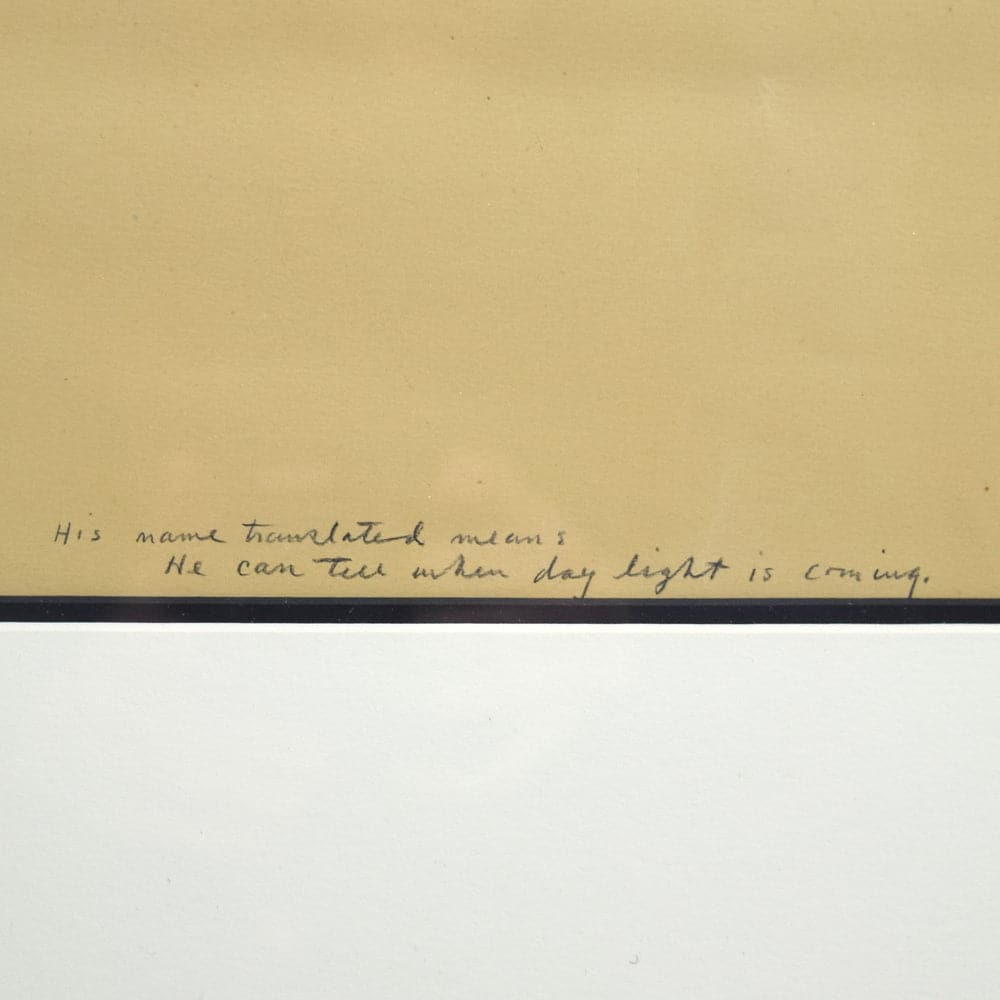 His name translated means
He can tell when day light is coming.